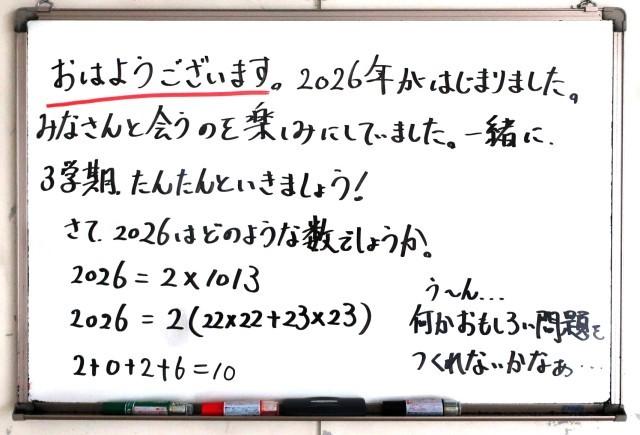 おはようございます。2026年がはじまりました。
みなさんと会うのを楽しみにしていました。一緒に、
3学期、たんたんといきましょう!
さて、2026はどのような数でしょうか。
2026 = 2×1013
2026 = 2(22×22+23×23)
2+0+2+6=10
う〜ん...
何かおもしろい問題を
つくれないかなぁ...